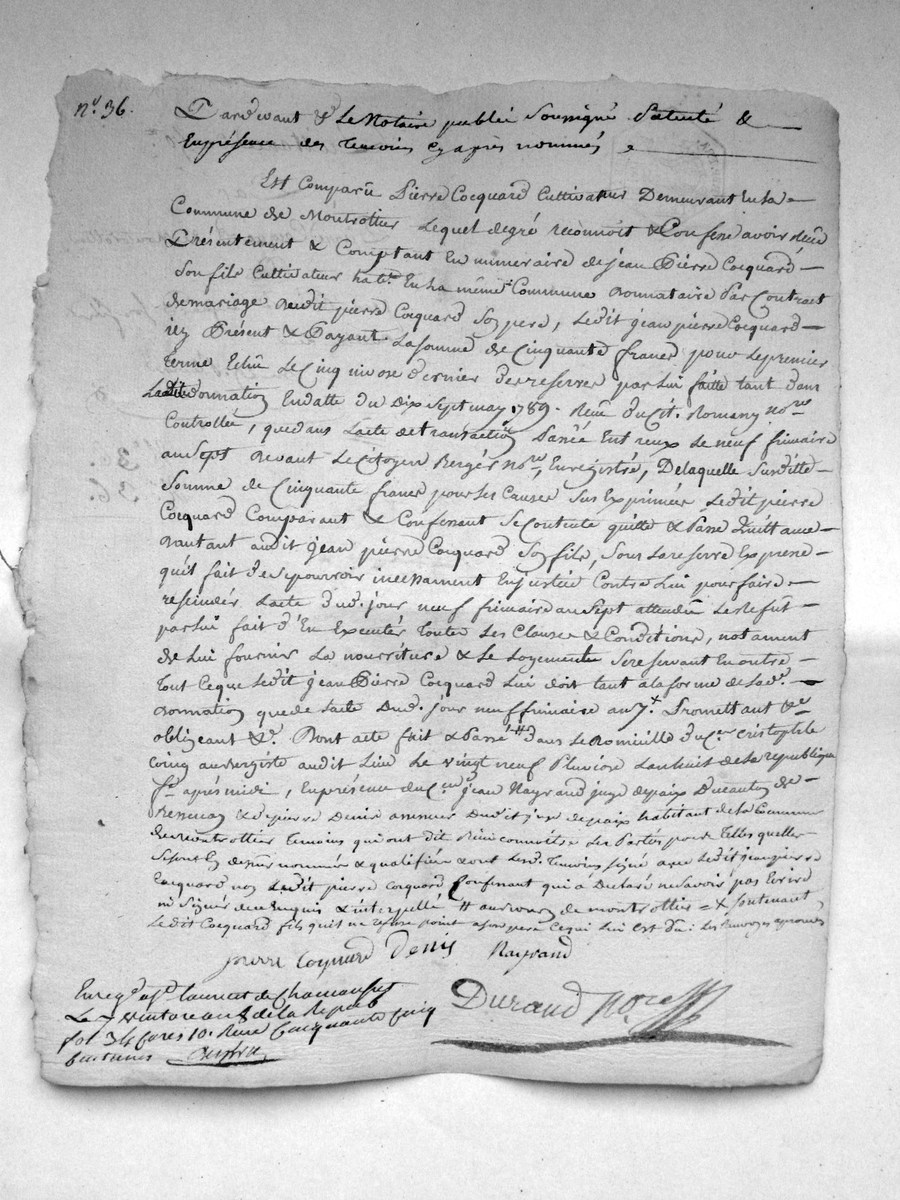 n.º 36.
Pardevant Le Notaire public Soussigné Patenté &
En présence des Temoins cy après nommés
Est Comparû Pierre Cocquard Cultivateur Demeurant En la
Commune de Montrottier Lequel de gré reconnoit & Confesse avoir Reçû
Présentement & Comptant En numeraire de jean Pierre Cocquard
Son fils Cultivateur hab.t En La même Commune Donnataire Par Contract
de mariage dudit pierre Cocquard Son pere, Ledit jean pierre Cocquard
icy Présent & Payant La somme de Cinquante francs pour Le premier
terme Echû Le Cinq nivose dernier des reserves par Lui faitte tant dans
Laditte donnation En datte du Dix Sept may 1789. Reçû du Cit. Romany no.re
Controllée, que dans L'acte de transaction Passée Entr'eux Le neuf frimaire
an Sept Devant Le Citoyen Berger no.re, Enregistré, De laquelle Susditte
Somme de Cinquante francs pour Les Causes Sus Exprimées Ledit pierre
Cocquard Comparant & Confessant Se Contente quitte & Passe Quittance
d'autant audit jean pierre Cocquard Son fils, Sous la reserve Expresse
qu'il fait de Se pourvoir incessament En justice Contre Lui pour faire
rescinder L'acte dud. jour neuf frimaire an Sept attendû Le refût
par Lui fait d'En Executer toutes Les Clauses & Conditions, notament
de Lui fournir La nourriture & Le Logement Se reservant En outre
tout Ce que Ledit jean Pierre Cocquard Lui doit tant a la forme de Lad.
donnation que de L'acte Dud. jour neuf frimaire an 7. Promettant &
obligeant &. Dont acte fait & Passé # dans Le Domicille du C.en Cristophle
Coinq aubergiste audit Lieu Le vingt neuf Pluviose L'an huit de La republique
f.se après midi, En présence du C.en jean Raynand juge de paix Du Canton de
& de pierre Denis assesseur Dudit juge de paix habitant de la Commune
de Montrottier temoins qui ont dit Bien connoitre Les Parties pour telles quelles
Se sont Cy dessus nommée & qualifiée & ont Lesd. temoins Signé avec Ledit jean pierre
Cocquard non Ledit pierre Cocquard Confessant qui a Declaré ne Savoir pas Ecrire
ni Signer de ce Enquis & interpellé # au bourg de montrottier = & Soutenant
Ledit Cocquard fils qu'il ne refuse point a Son pere Ce qui Lui est Dû: Les Renvoys aprouvés
Denis Raynand
Durand No.re
Enreg.é à S.t Laurent de Chamousset
Le 7 ventose an 8 de la Répub
fol 34 Case 10. Reçu Cinquante Cinq
Centimes